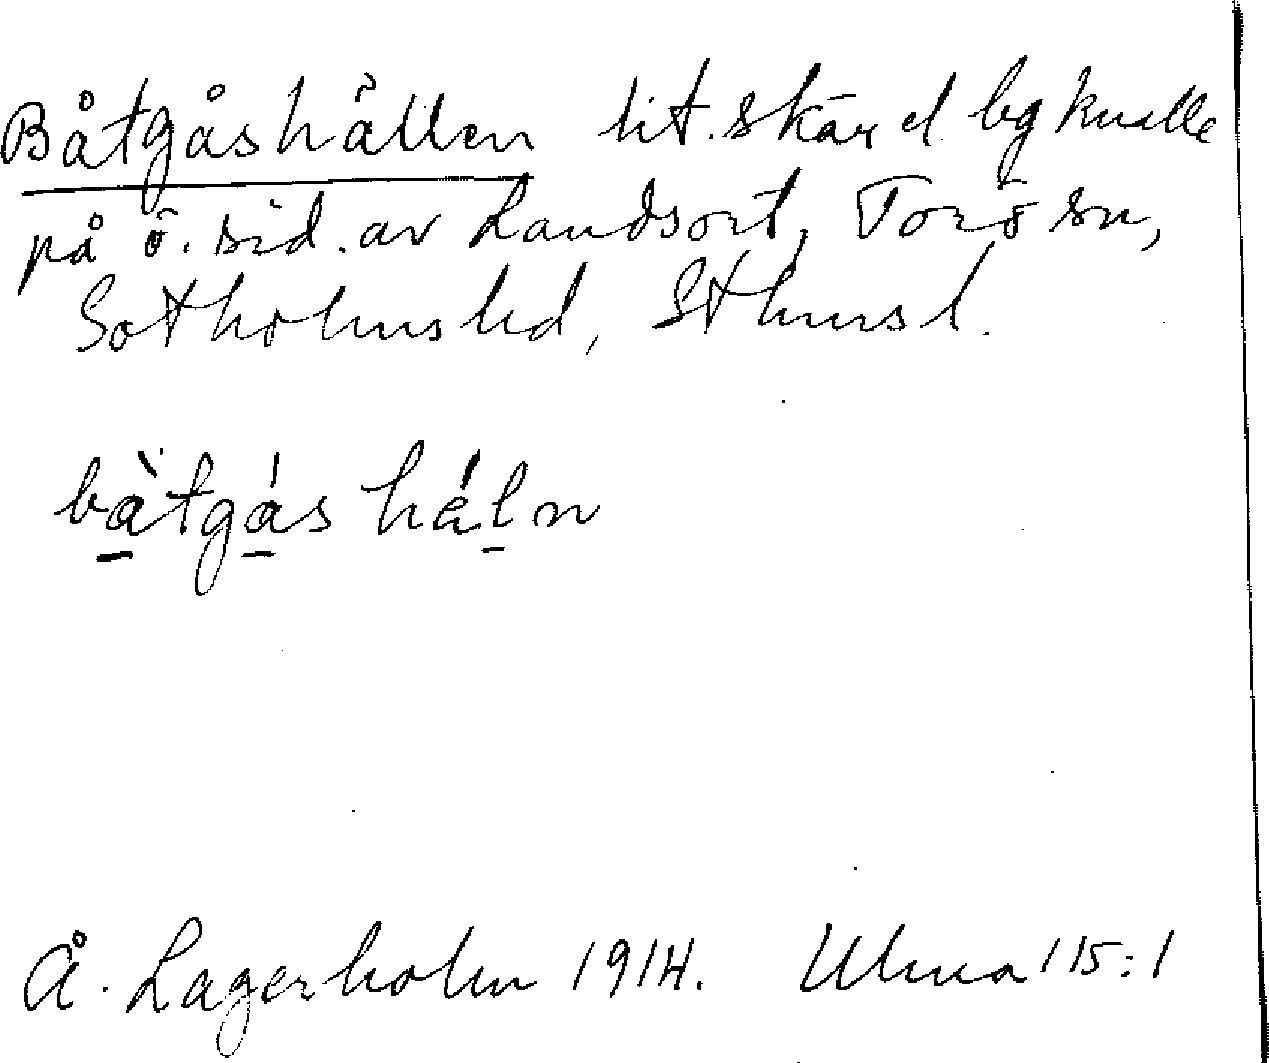 Båtgåshällen lit. skär el bg knalle
på ö. sid. av Landsort, Torö sn,
Sotholms hd, Sthms l.
bàtgás háln
Å. Lagerholm 1914. Ulma 115:1